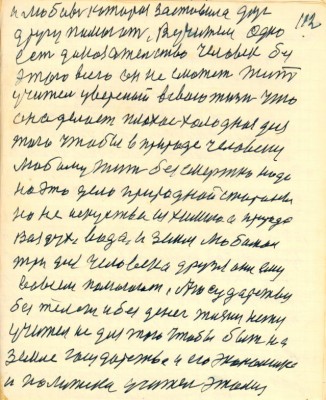 и любовь которая заставила друг
другу помогать, В учителя одно
есть доказательство человек без
этого всего он не сможет жить
учитель уверенный в своего жизни что
она делает плохое-холодная для
того чтобы в природе человеку
любому жить бессмертно надо
на это дело природной стараться
но не искуства и химию а природа
воздух вода, и земля любимая
три для человека друзья они ему
всегда помогают, А государству
без тела и без денег жизни нету
учитель не для того чтобы быть на
земле государства и его экономике
и политика учитель этому